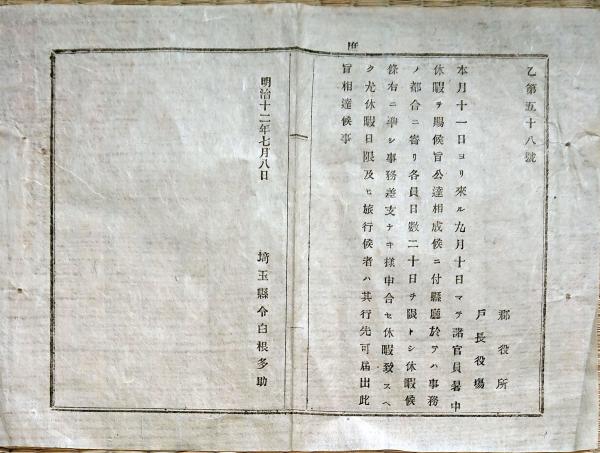 乙第五十八號
郡役所
戸長役場
本月十一日ヨリ來ル九月十日マテ諸官員暑中
休暇ヲ賜候旨公達相成候ニ付縣廳於テハ事務
ノ都合ニ寄リ各員日數二十日ヲ限トシ休暇候
條右ニ準シ事務差支ナキ樣申合セ休暇致スヘ
ク尤休暇日限及ヒ旅行候者ハ其行先可届出此
旨相達候事
庶
明治十二年七月八日
埼玉縣令白根多助